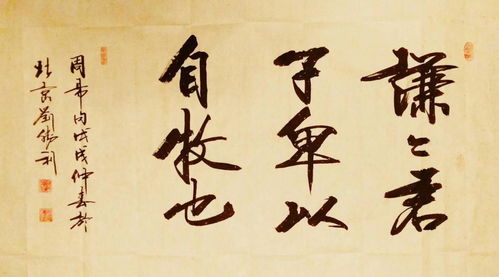 谦谦君
子卑以
自牧也
周易句戊戌仲春於
北京刘胜利